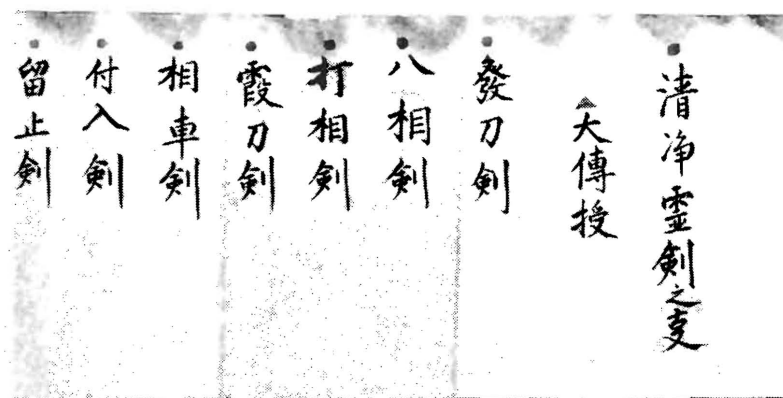 清浄霊剣之支
大傳授
發刀剣
八相剣
打相剣
霞刀剣
相車剣
付入剣
留止剣